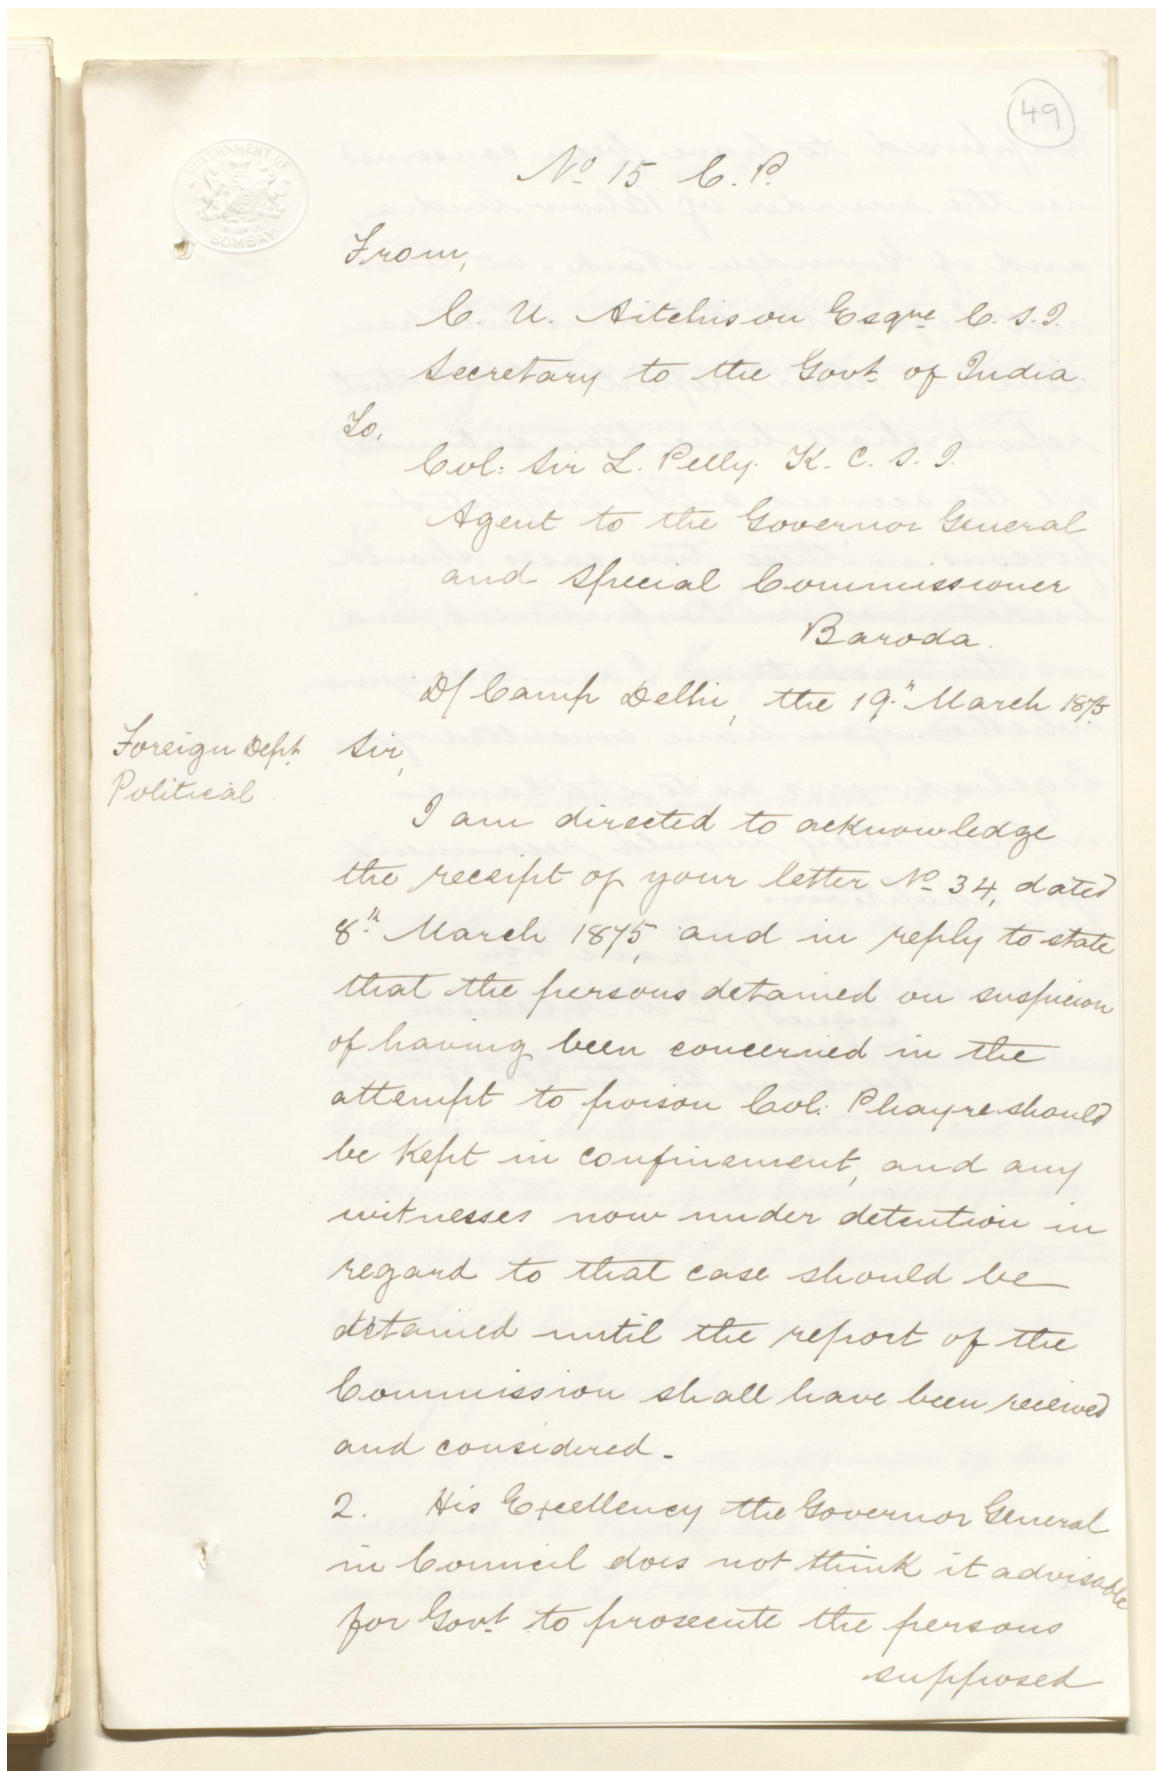 49
GOVERNMENT OF
BOMBAY
No 15 C. P.
From,
C. U. Aitchison Esqre C. S. I.
Secretary to the Govt of India.
To,
Col: Sir L. Pelly. K. C. S. I.
Agent to the Governor General
and Special Commissioner
Baroda.
D/ Camp Delhi, the 19th March 1875
Foreign Dept
Political
Sir,
I am directed to acknowledge
the receipt of your letter No 34, dated
8th March 1875, and in reply to state
that the persons detained on suspicion
of having been concerned in the
attempt to poison Col: Phayre should
be kept in confinement, and any
witnesses now under detention in
regard to that case should be
detained until the report of the
Commission shall have been received
and considered.
2. His Excellency the Governor General
in Council does not think it advisable
for Govt to prosecute the persons
supposed